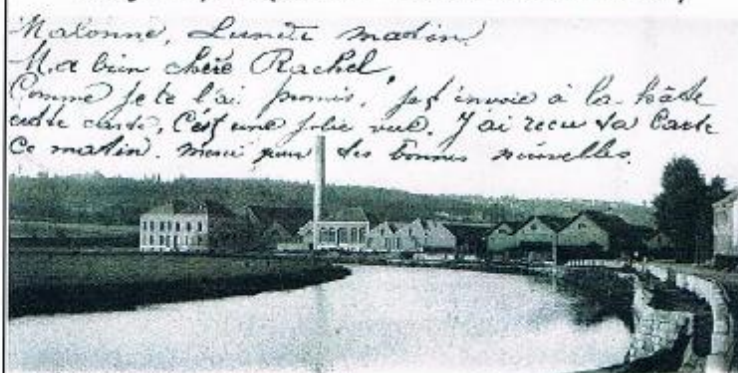 Malonne, Lundi matin
Ma bien chère Rachel,
Comme je te l'ai promis, je t'envoie à la hâte
cette carte, C'est une jolie vue. J'ai reçu ta Carte
Ce matin. merci pour tes bonnes nouvelles.